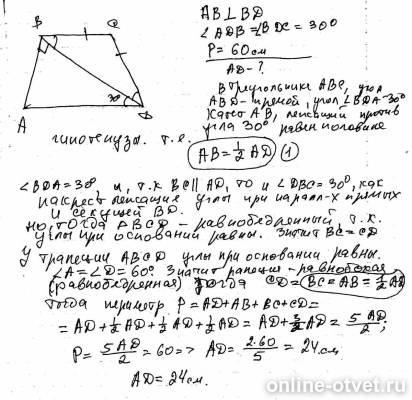 B
C
A
D
30°
AB⊥BD
∠ADB=∠BDC=30°
P=60см
AD-?
В треугольнике ABC, угол
ABD-прямой, угол ∠BDA=30°
Катет AB, лежащий против
угла 30° равен половине
гипотенузы. т.е.
AB=½AD (1)
∠BDA=30° и, т.к BC∥AD, то и ∠DBC=30°, как
накрест лежащие углы при паралл-х прямых
и секущей BD.
но, тогда BCD - равнобедренный т.к.
углы при основании равны. Значит BC=CD
У трапеции ABCD углы при основании равны.
∠A=∠D=60°. Значит рапеция - равнобокая
(равнобедренная) Тогда CD=BC=AB=½AD
Тогда периметр P=AD+AB+BC+CD=
=AD+½AD+½AD+½AD=AD+3/2AD=5AD/2;
P=5AD/2=60=>AD=2·60/5=24см
AD=24см.
online-otvet.ru